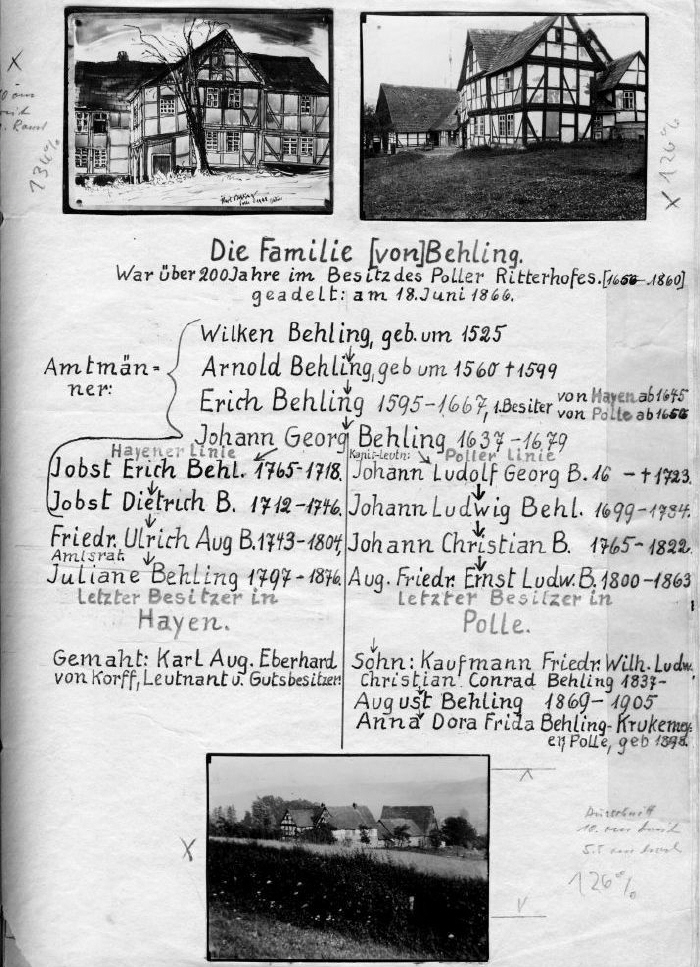 134%
X
X 126%
Die Familie [von] Behling.
War über 200 Jahre im Besitz des Poller Ritterhofes. [1650-1860]
geadelt: am 18. Juni 1866.
Amtmän=
ner:
Wilken Behling, geb. um 1525
Arnold Behling, geb um 1560 † 1599
Erich Behling 1595-1667, 1. Besiter von Hayen ab 1645
von Polle ab 1650
Johann Georg Behling 1637-1679
Hayener Linie
Jobst Erich Behl. 1765-1718.
Jobst Dietrich B. 1712-1746.
Friedr. Ulrich Aug B. 1743-1804,
Amtsrat.
Juliane Behling 1797-1876.
Letzter Besitzer in
Hayen.
Gemaht: Karl Aug. Eberhard
von Korff, Leutnant u. Gutsbesitzer.
Kapit-Leutn: Poller Linie
Johann Ludolf Georg B. 16 - † 1723.
Johann Ludwig Behl. 1699-1784.
Johann Christian B. 1765-1822.
Aug. Friedr. Ernst Ludw. B. 1800-1863
Letzter Besitzer in
Polle.
Sohn: Kaufmann Friedr. Wilh. Ludw.
Christian Conrad Behling 1837-
August Behling 1869-1905
Anna Dora Frida Behling-Krukemey-
er, Polle, geb 1898.
X
126%